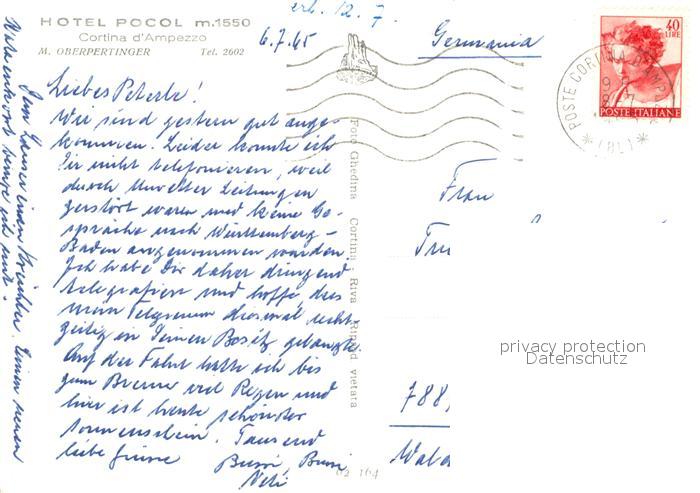 HOTEL POCOL m.1550
Cortina d'Ampezzo
M. OBERPERTINGER Tel. 2602
erh. 12. 7.
6.7.65
Germania
40
LIRE
POSTE ITALIANE
POSTE CORTINA D'AMPEZZO
(BL)
Liebes Peterle!
Wir sind gestern gut ange-
kommen. Leider konnte ich
Dir nicht telefonieren, weil
durch Unwetter Leitungen
zerstört waren und keine Ge-
spräche nach Württemberg-
Baden angenommen wurden.
Ich habe Dir daher dringend
telegrafiert und hoffe, dass
mein Telegramm diesmal recht-
zeitig in Deinen Besitz gelangte.
Auf der Fahrt hatte ich bis
zum Brenner viel Regen und
hier ist heute schönster
Sonnenschein. Tausend
liebe Grüsse
Bussi, Bussi
Foto Ghedina Cortina - Riva Riprod vietata
62 164
Frau
788
Wald
privacy protection
Datenschutz